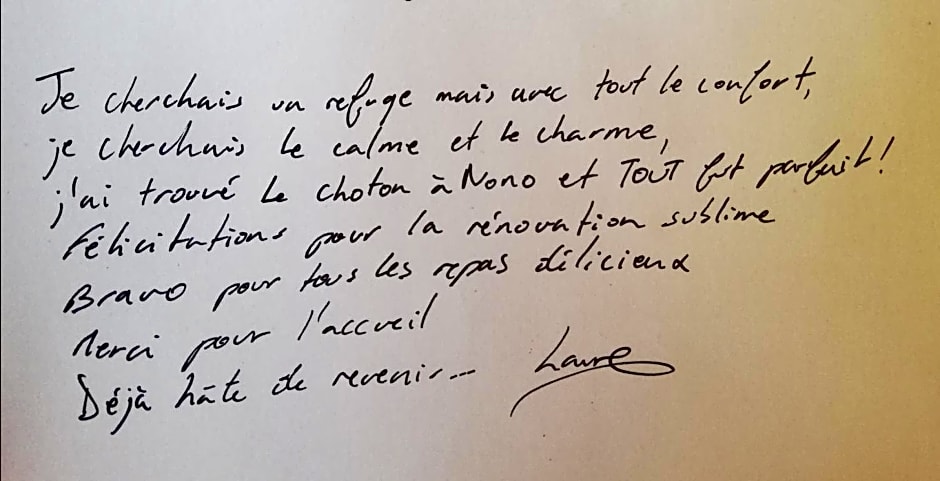 Je cherchais un refuge mais avec tout le confort,
je cherchais le calme et le charme,
j'ai trouvé Le choton à Nono et TOUT fut parfait !
Félicitations pour la rénovation sublime
Bravo pour tous les repas délicieux
Merci pour l'accueil
Déjà hâte de revenir... Laure